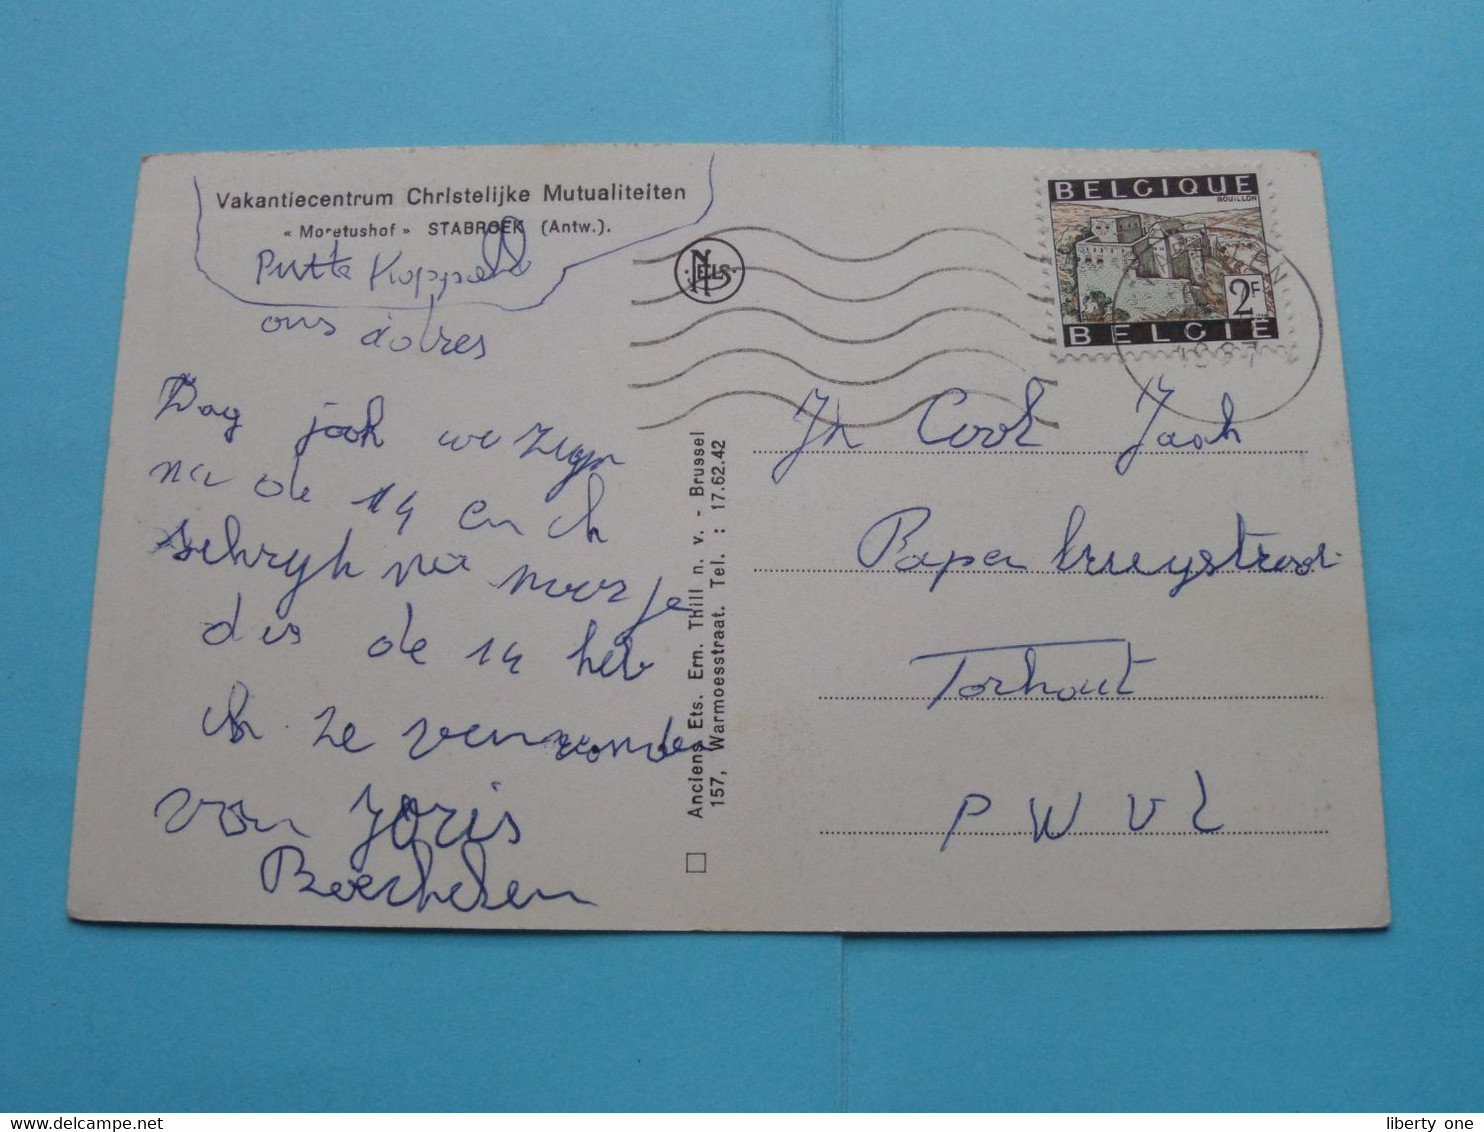 Vakantiecentrum Christelijke Mutualiteiten
« Moretushof » STABROEK (Antw.).
Putte Kappelle
ons adres
Dag jook we zijn
nu de 14 en ik
schryk nu maar je
dis de 14 heb
ik ze
von Joris
Boechelen
NELS
Anciens Ets. Ern. Thill n. v. - Brussel
157, Warmoesstraat. Tel. : 17.62.42
BELGIQUE
BOUILLON
2F
BELGIE
Jh Cook Jaak
Papen bruystraat
Torhout
P W V L
liberty one